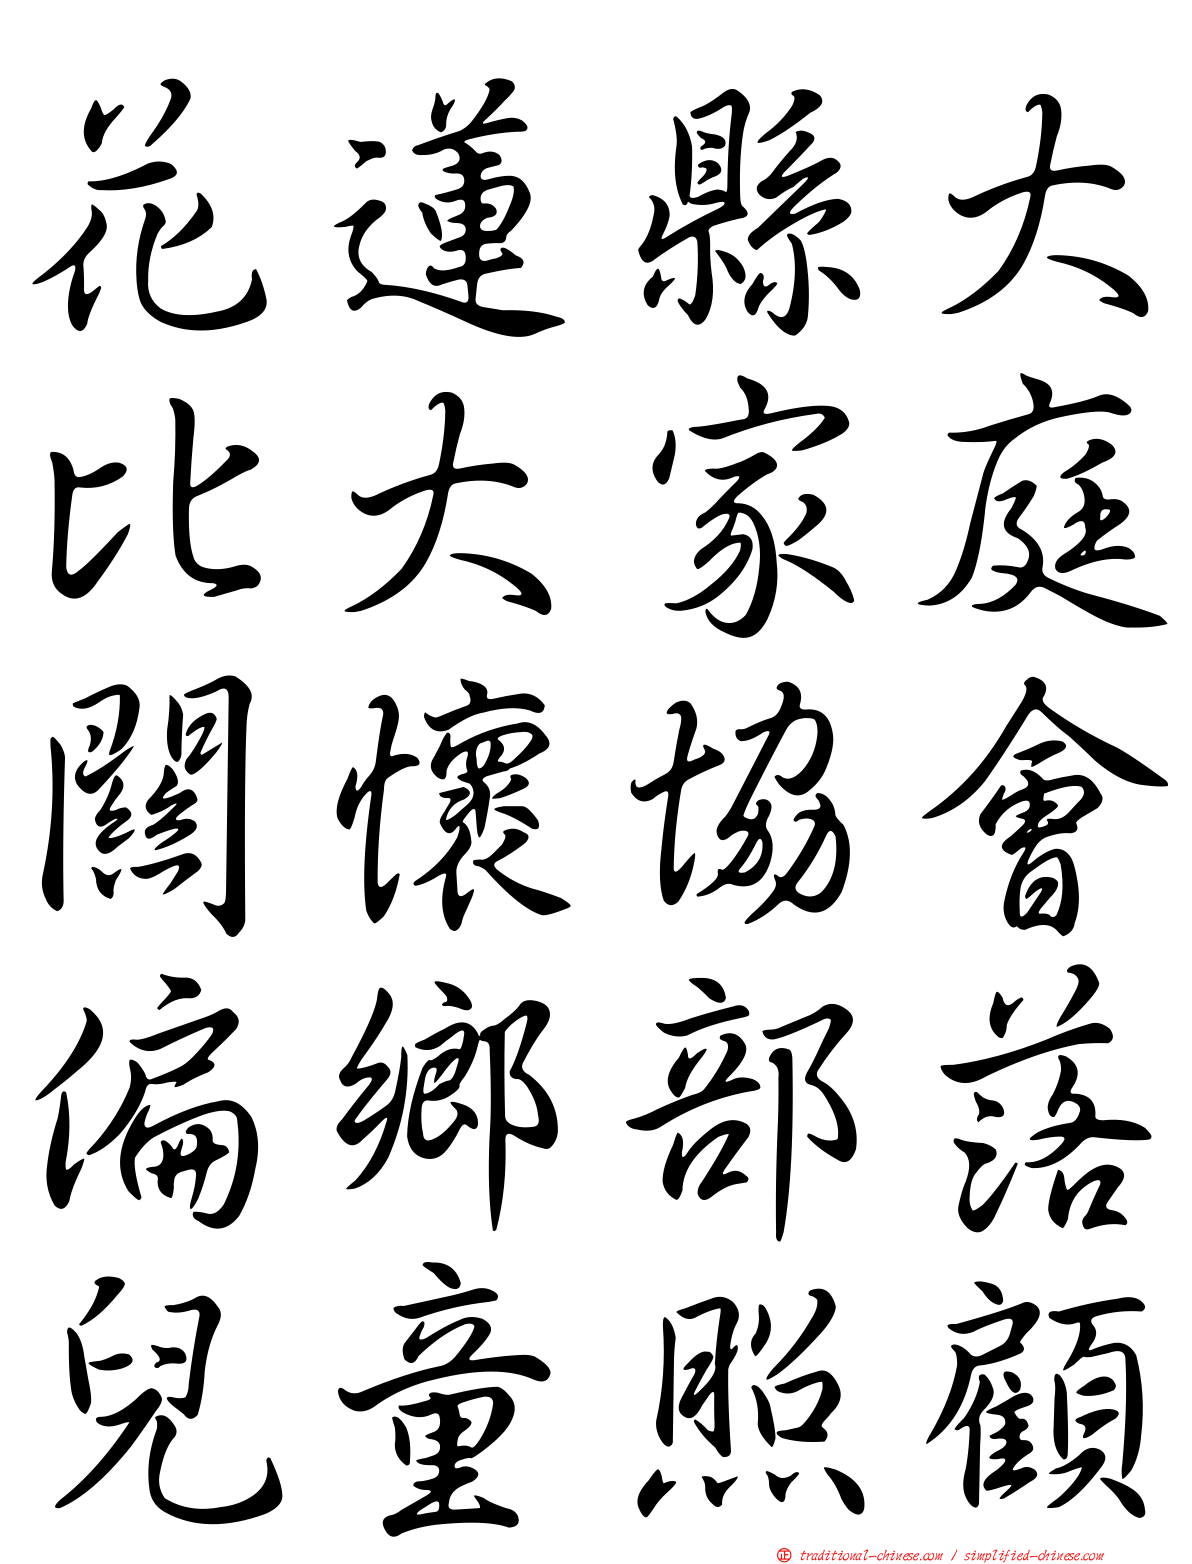 花蓮縣大
比大家庭
關懷協會
偏鄉部落
兒童照顧
正 traditional-chinese.com / simplified-chinese.com